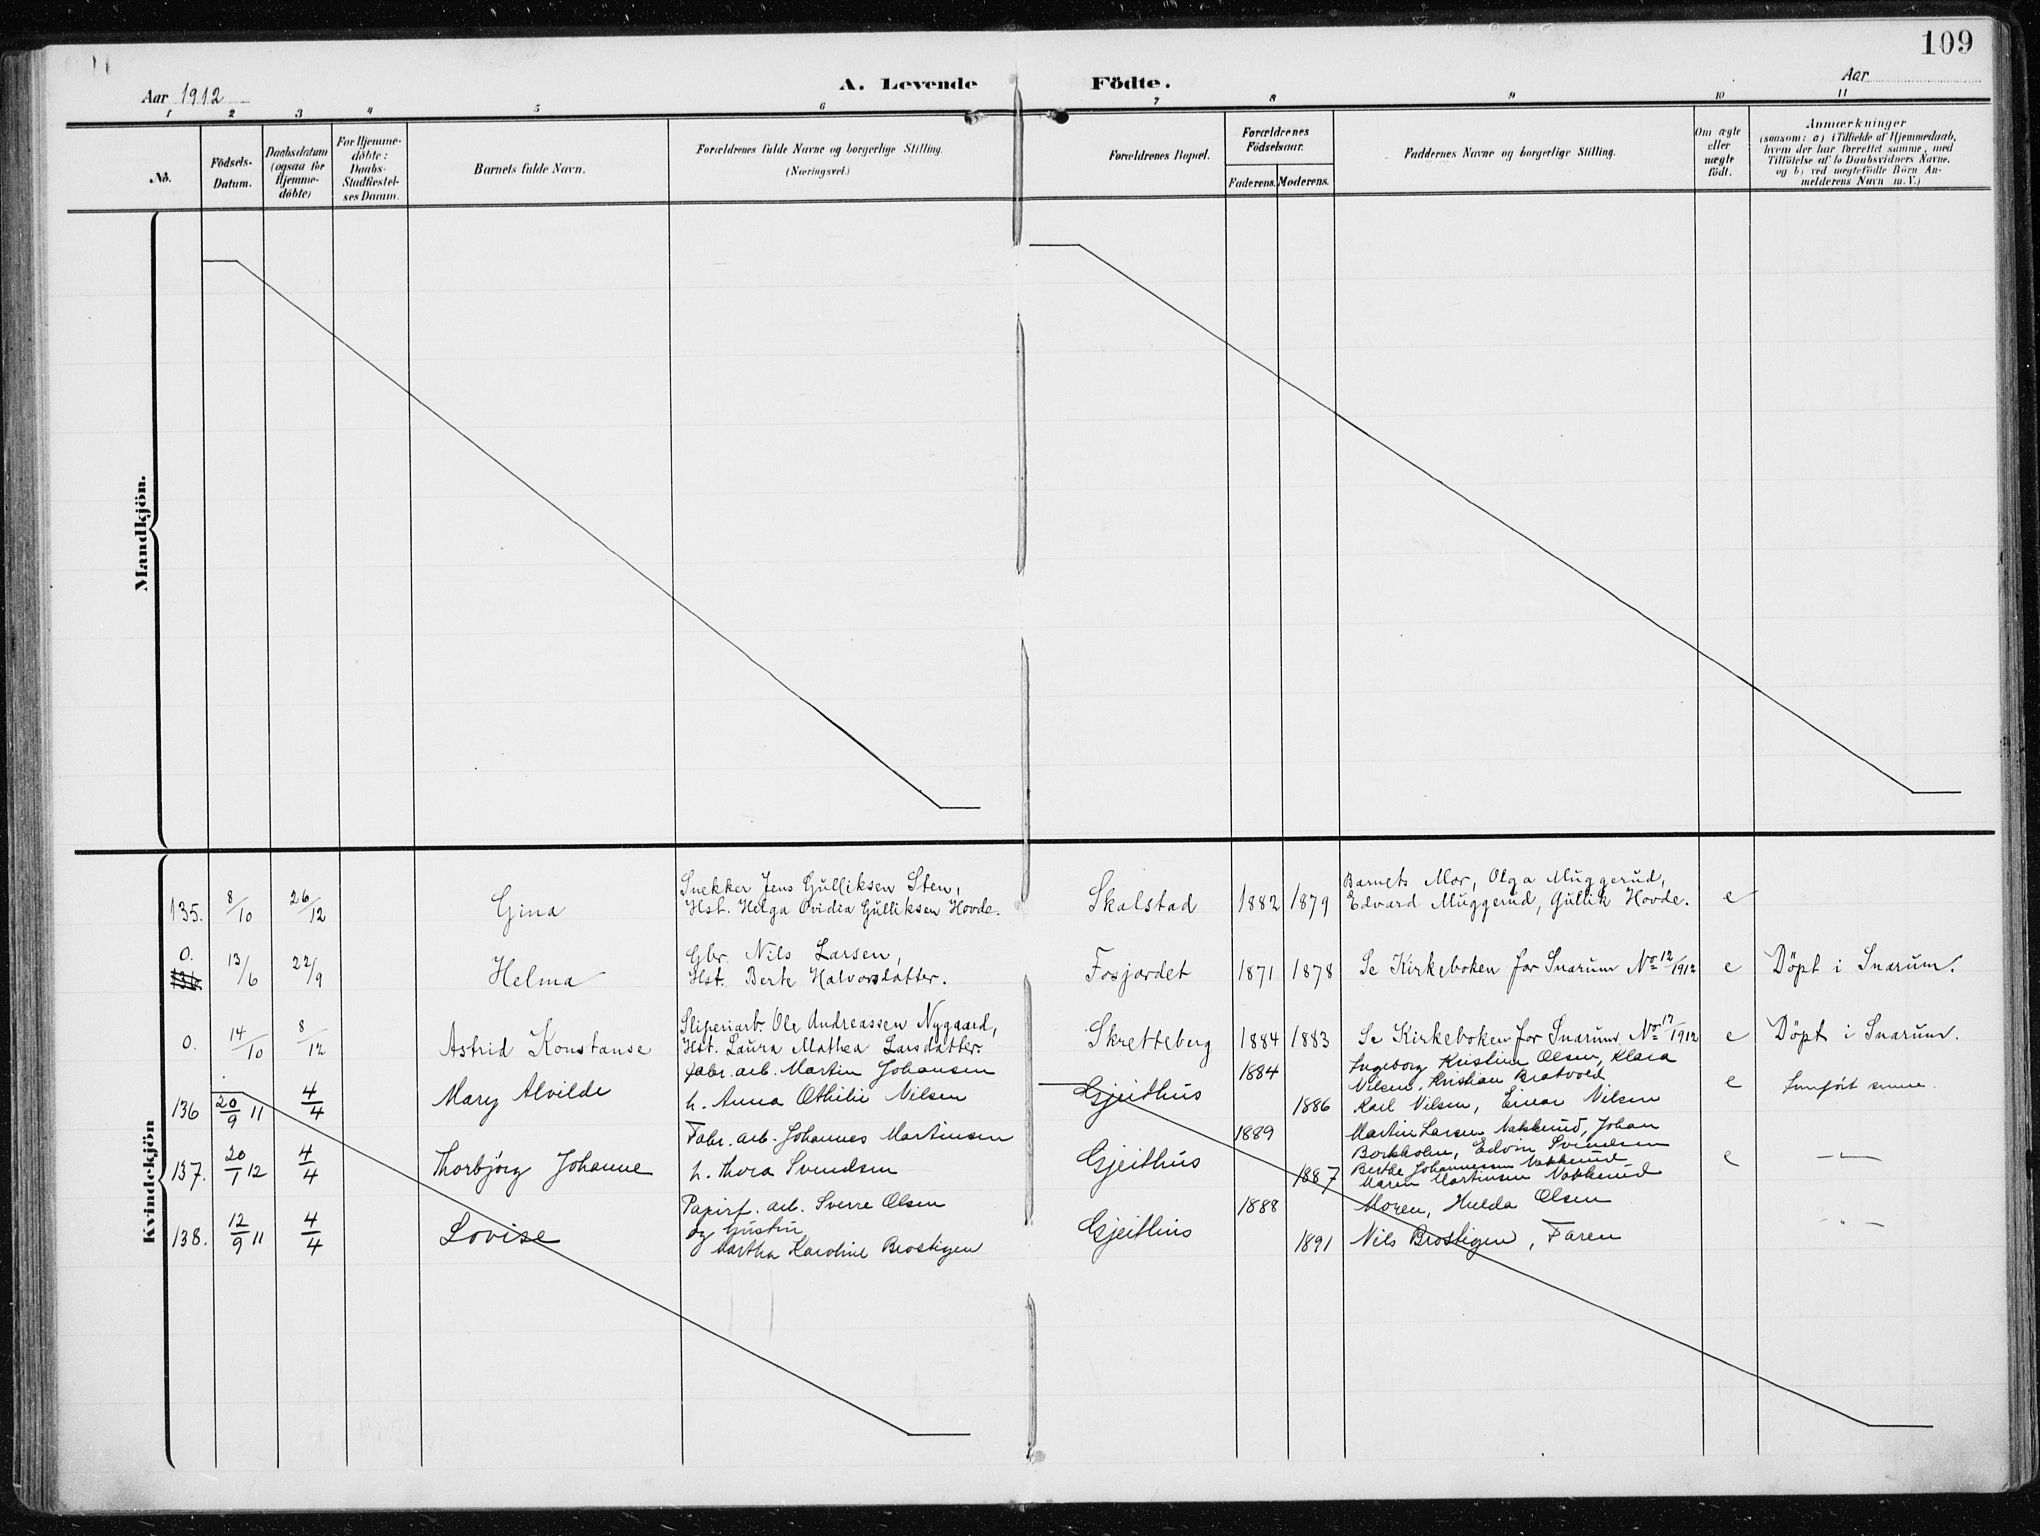 109
A. Levende Födte.
Aar 1912
Aar
1 2 3 4 5 6 7 8 9 10 11
No.
Födsels-
Datum.
Daabsdatum
(ogsaa for
Hjemme-
döbte)
For Hjemme-
döbte:
Daabs-
Stadfæstel-
ses Datum.
Barnets fulde Navn.
Forældrenes fulde Navne og borgerlige Stilling.
(Næringsvei.)
Forældrenes Bopæl.
Forældrenes
Födselsaar.
Faderens. Moderens.
Faddernes Navne og borgerlige Stilling.
Om ægte
eller
uægte
födt.
Anmærkninger
(saasom: a) i Tilfælde af Hjemmedaab,
hvem der har forrettet samme, med
Tilföielse af to Daabsvidners Navne,
og b) ved uægtefödte Börn An-
melderens Navn m. V.)
Mandkjön.
Kvindekjön
135. 8/10 26/12 Gina
Snekker Jens Gulliksen Sten,
Hst. Helga Ovidia Gulliksen Hovde.
Skalstad 1882 1879
Barnets Mor, Olga Muggerud,
Edvard Muggerud, Gullik Hovde.
e
0.
136. 13/6 22/9 Helma
Gbr. Nils Larsen,
Hst. Berte Halvorsdatter.
Fosjordet 1871 1878 Se Kirkeboken for Snarum No 12/1912 e Döpt i Snarum.
0. 14/10 8/12 Astrid Konstanse
Sliperiarb. Ole Andreassen Nygaard,
Hst. Laura Mathea Larsdatter.
Skretteberg 1884 1883 Se Kirkeboken for Snarum No 17/1912 e Döpt i Snarum.
136 20/9 11 4/4 Mary Alvilde
Fabr. arb. Martin Johansen
h. Anna Othilie Nilsen
Gjeithus 1884 1886
Ingeborg Kristine Olsen, Klara
Nilsen, Kristian Bratvold
Karl Nilsen, Einar Nilsen
e
137. 20/1 12 4/4 Thorbjörg Johanne
Fabr. arb. Johannes Martinsen
h. Thora Svendsen
Gjeithus 1889 1887
Martin Larsen Nakkerud, Johan
Borkholm, Edvin Svendsen
Berthe Johannessen Nakkerud
Maren Martinsen Nakkerud
e —"—
138. 12/9 11 4/4 Lovise
Papirf. arb. Sverre Olsen
og Hustru
Martha Karoline Brostigen
Gjeithus 1888 1891
Moren, Hulda Olsen
Nils Brostigen, Faren
—"—